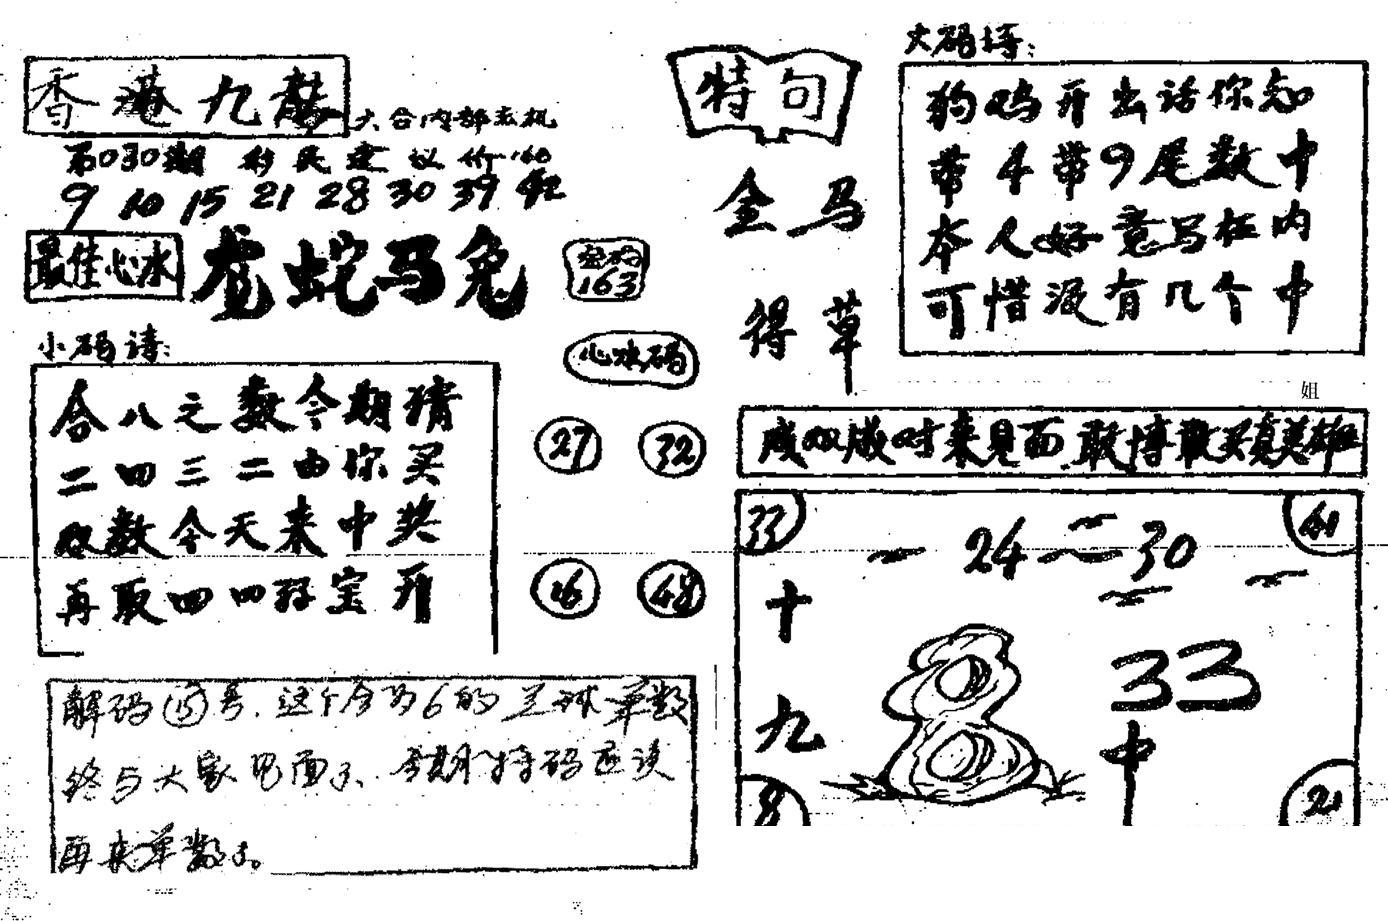 香港九龙
六合内部玄机
第030期 彩民建议价:160
9 10 15 21 28 30 39 42
最佳心水
龙蛇马兔
密码
163
小码诗:
合八之数今期猜
二四三二由你买
双数今天来中奖
再取四四好宝开
心水码
27 32
16 48
解码 15号.这个合为6的兰球单数
终与大家见面了、今期特码应该
再来单数了。
特句
金马
得草
大码诗:
狗鸡开出话你知
带4带9尾数中
本人好意写在内
可惜没有几个中
姐
成双成对来见面.敢博敢买真英雄
33 41
24 30
十
九
33
中
8 21